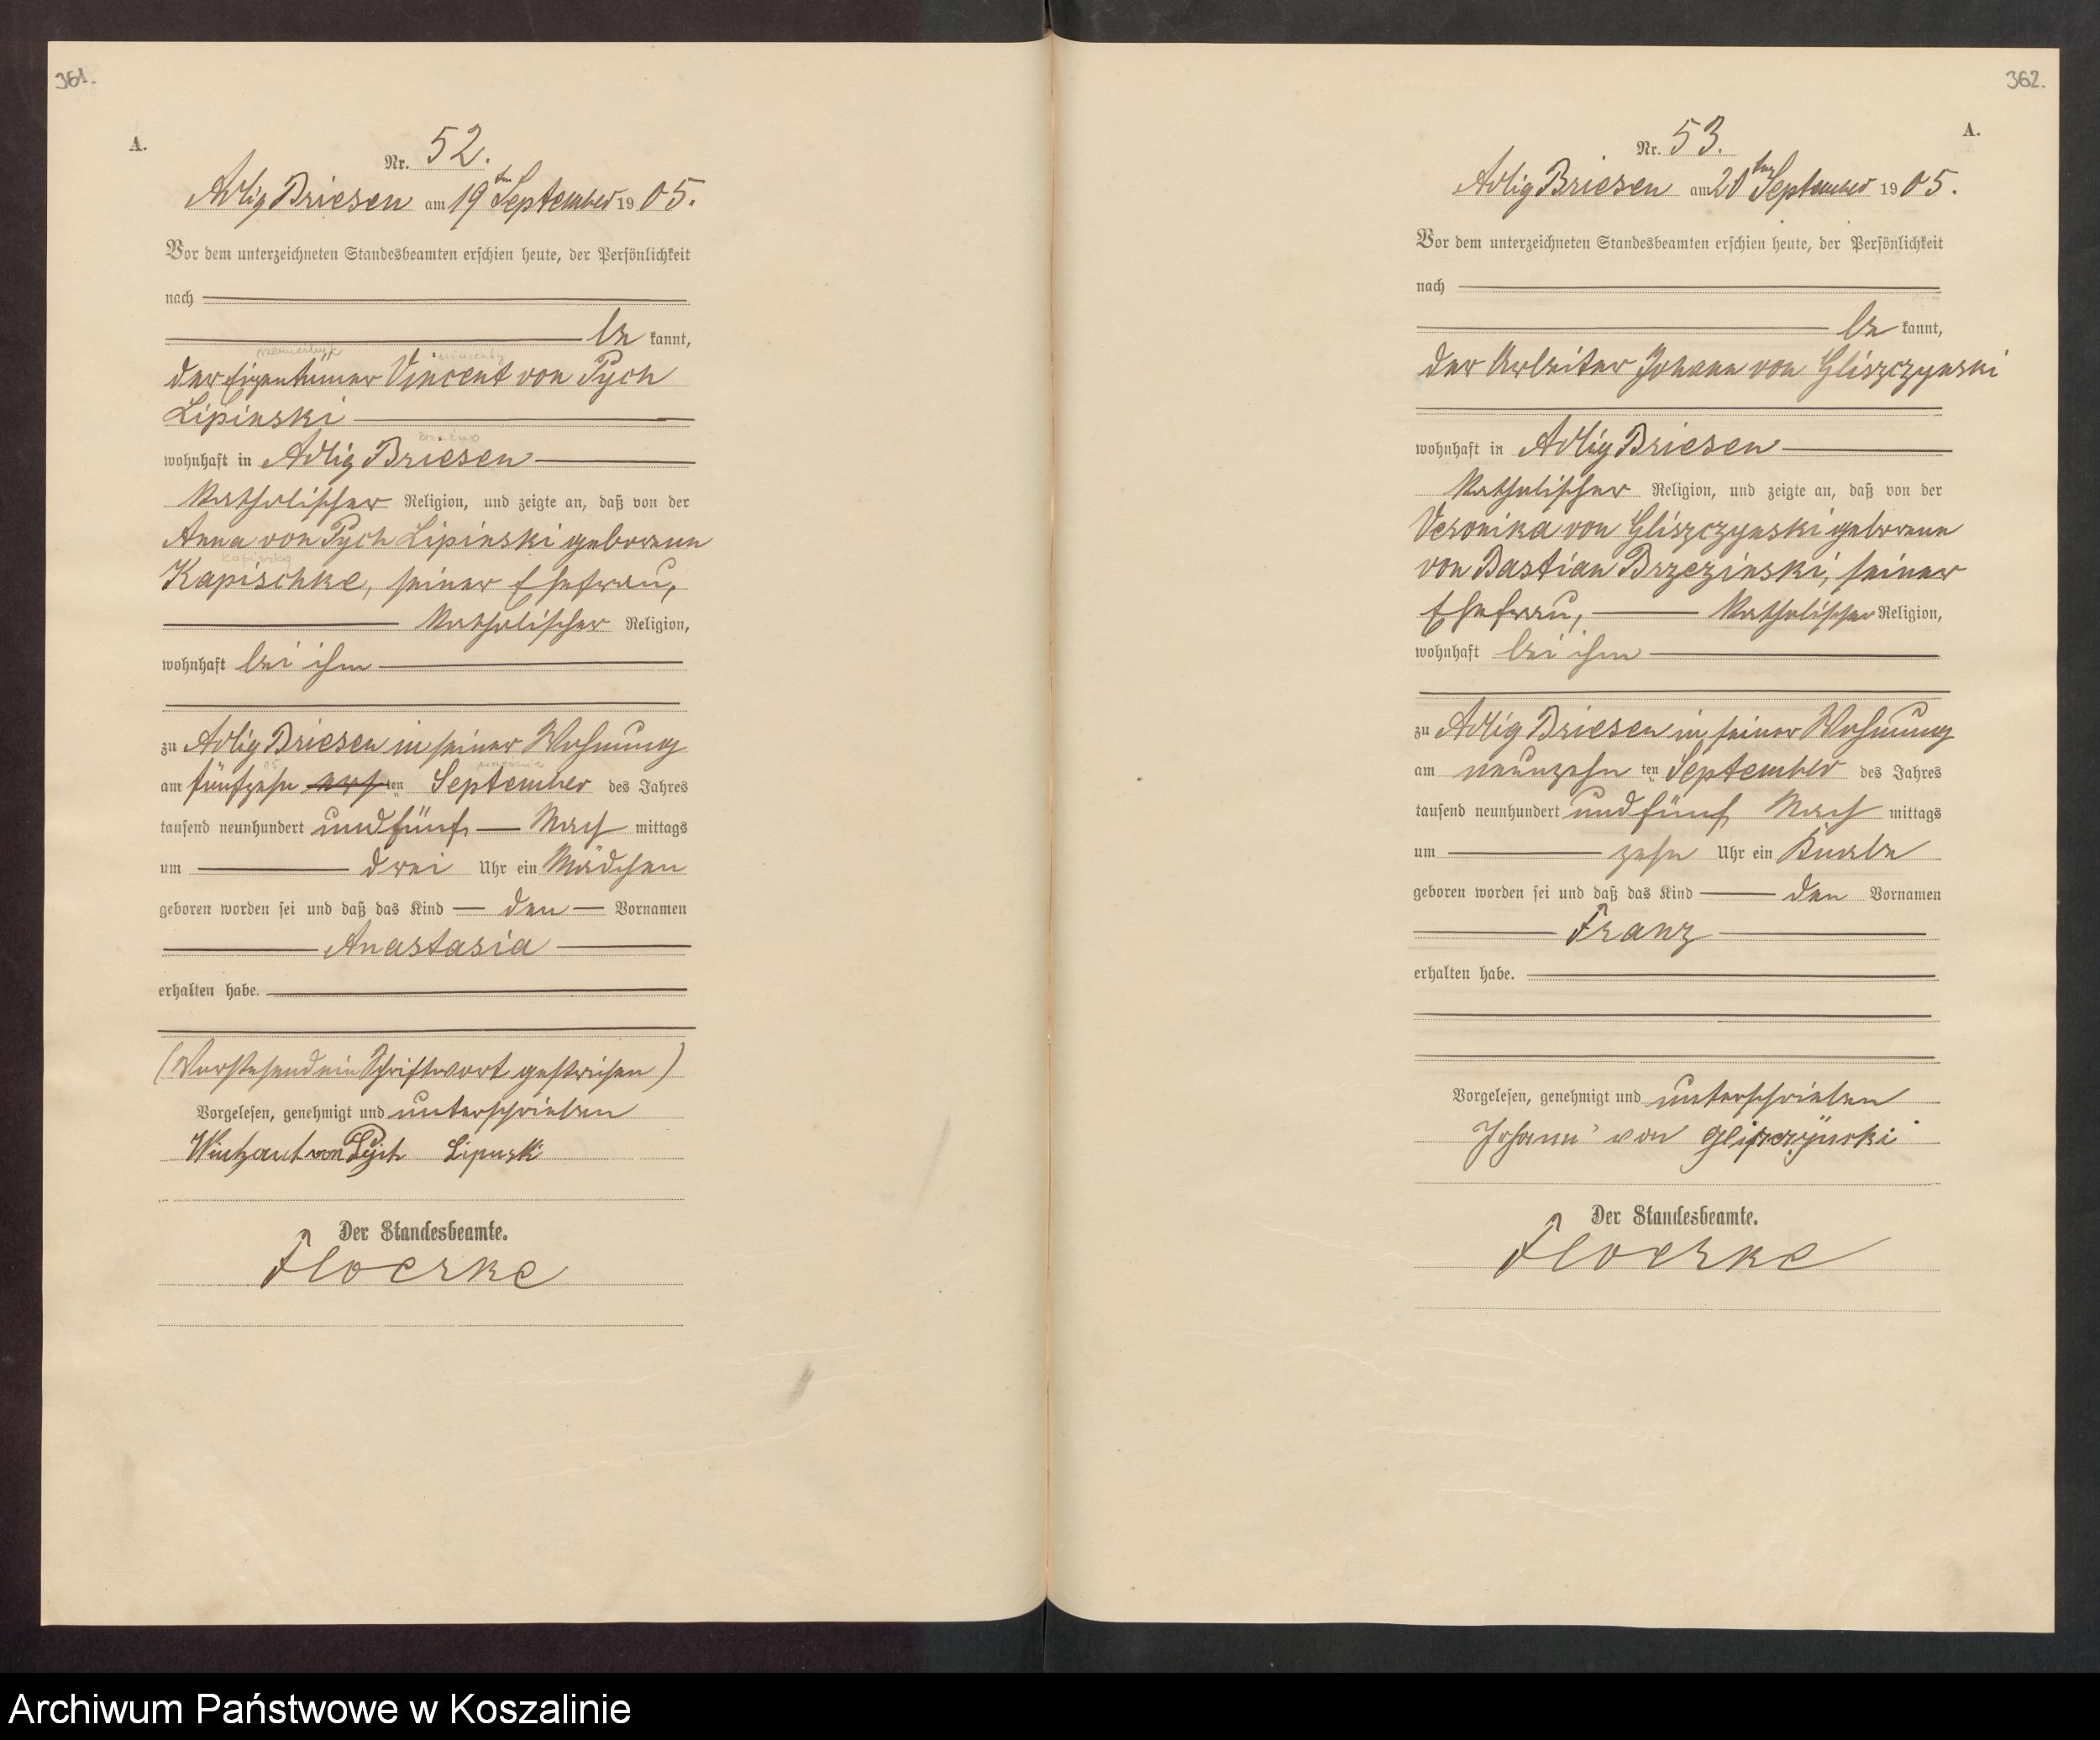 361.
A.
Nr. 52.
Adlig Briesen am 19ten September 1905.
Vor dem unterzeichneten Standesbeamten erschien heute, der Persönlichkeit
nach
be kannt,
der Eigentümer Vincent von Pych
Lipinski
wohnhaft in Adlig Briesen
katholischer Religion, und zeigte an, daß von der
Anna von Pych Lipinski geborenen
Kapischke, seiner Ehefrau,
katholischer Religion,
wohnhaft bei ihm
zu Adlig Briesen in seiner Wohnung
am fünfzehn ten September des Jahres
tausend neunhundert und fünf Nach mittags
um drei Uhr ein Mädchen
geboren worden sei und daß das Kind den Vornamen
Anastasia
erhalten habe.
(Vorstehend ein Schriftwort gestrichen)
Vorgelesen, genehmigt und unterschrieben
von Pych Lipinski
Der Standesbeamte.
Floerke
362.
A.
Nr. 53.
Adlig Briesen am 20ten September 1905.
Vor dem unterzeichneten Standesbeamten erschien heute, der Persönlichkeit
nach
be kannt,
der Arbeiter Johann von Gliszczynski
wohnhaft in Adlig Briesen
katholischer Religion, und zeigte an, daß von der
Veronika von Gliszczynski geborenen
von Bastian Brzezinski, seiner
Ehefrau, katholischer Religion,
wohnhaft bei ihm
zu Adlig Briesen in seiner Wohnung
am neunzehn ten September des Jahres
tausend neunhundert und fünf Nach mittags
um zehn Uhr ein Knabe
geboren worden sei und daß das Kind den Vornamen
Franz
erhalten habe.
Vorgelesen, genehmigt und unterschrieben
Johann von Gliszczynski
Der Standesbeamte.
Floerke
Archiwum Państwowe w Koszalinie